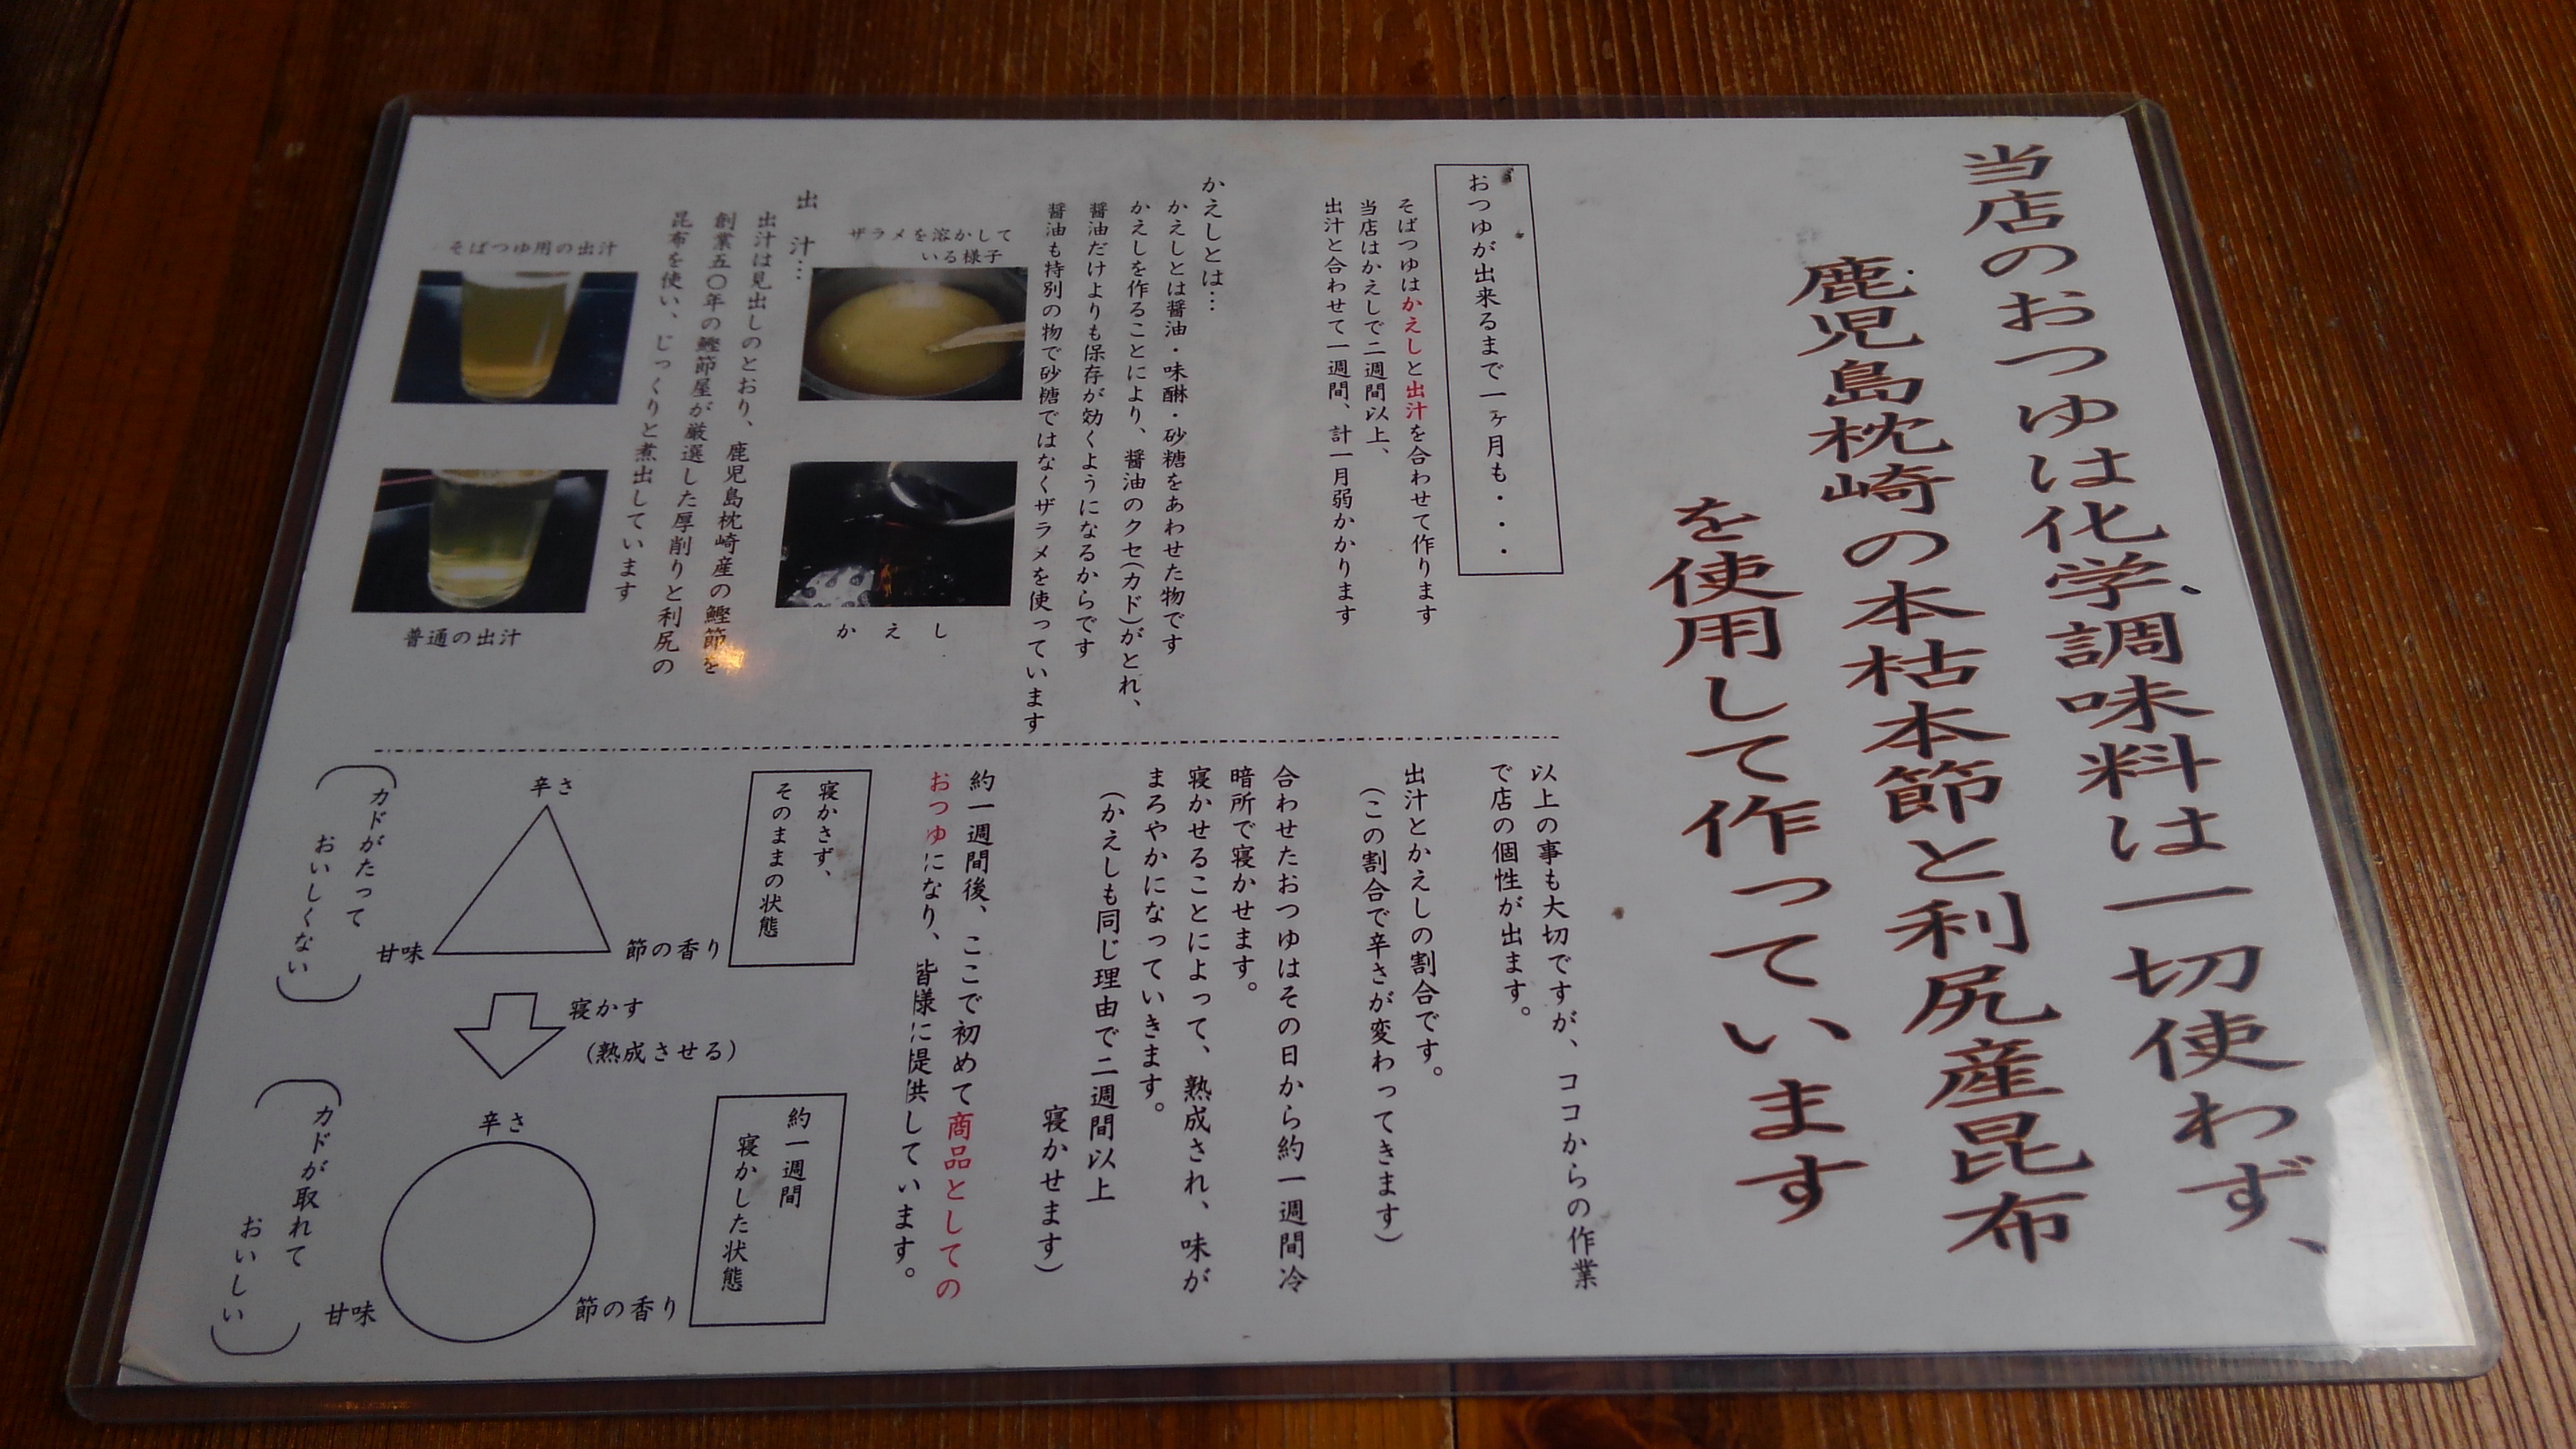 当店のおつゆは化学調味料は一切使わず、
鹿児島枕崎の本枯本節と利尻産昆布
を使用して作っています
おつゆが出来るまで一ヶ月も・・・
そばつゆはかえしと出汁を合わせて作ります
当店はかえしで二週間以上、
出汁と合わせて一週間、計一月弱かかります
かえしとは…
かえしとは醤油・味醂・砂糖をあわせた物です
かえしを作ることにより、醤油のクセ(カド)がとれ、
醤油だけよりも保存が効くようになるからです
醤油も特別の物で砂糖ではなくザラメを使っています
ザラメを溶かして
いる様子
かえし
出汁…
出汁は見出しのとおり、鹿児島枕崎産の鰹節を
創業五〇年の鰹節屋が厳選した厚削りと利尻の
昆布を使い、じっくりと煮出しています
そばつゆ用の出汁
普通の出汁
以上の事も大切ですが、ココからの作業
で店の個性が出ます。
出汁とかえしの割合です。
(この割合で辛さが変わってきます)
合わせたおつゆはその日から約一週間冷
暗所で寝かせます。
寝かせることによって、熟成され、味が
まろやかになっていきます。
(かえしも同じ理由で二週間以上
寝かせます)
約一週間後、ここで初めて商品としての
おつゆになり、皆様に提供しています。
寝かさず、
そのままの状態
辛さ
甘味
節の香り
カドがたって
おいしくない
寝かす
(熟成させる)
約一週間
寝かした状態
辛さ
甘味
節の香り
カドが取れて
おいしい